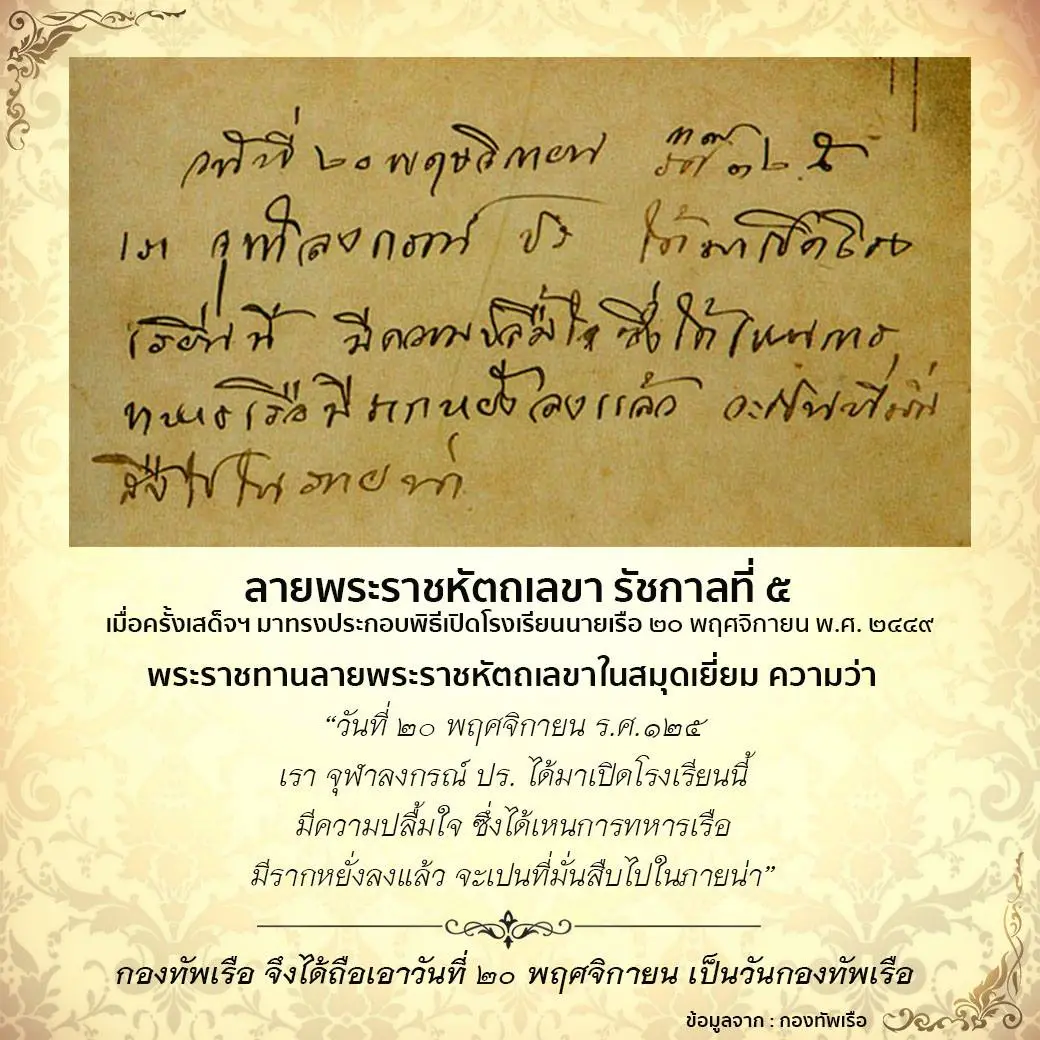 วันที่ ๒๐ พฤษจิกายน รัตนโกสินทร ๑๒๕
เรา จุฬาลงกรณ์ ปร ได้มาเปิดโรง
เรียนนี้ มีความปลื้มใจ ซึ่งได้เหนการ
ทหารเรือมีรากหยั่งลงแล้ว จะเปนที่มั่น
สืบไปในภายน่า
ลายพระราชหัตถเลขา รัชกาลที่ ๕
เมื่อครั้งเสด็จฯ มาทรงประกอบพิธีเปิดโรงเรียนนายเรือ ๒๐ พฤศจิกายน พ.ศ. ๒๔๔๙
พระราชทานลายพระราชหัตถเลขาในสมุดเยี่ยม ความว่า
“วันที่ ๒๐ พฤศจิกายน ร.ศ.๑๒๕
เรา จุฬาลงกรณ์ ปร. ได้มาเปิดโรงเรียนนี้
มีความปลื้มใจ ซึ่งได้เหนการทหารเรือ
มีรากหยั่งลงแล้ว จะเปนที่มั่นสืบไปในภายน่า”
กองทัพเรือ จึงได้ถือเอาวันที่ ๒๐ พฤศจิกายน เป็นวันกองทัพเรือ
ข้อมูลจาก : กองทัพเรือ